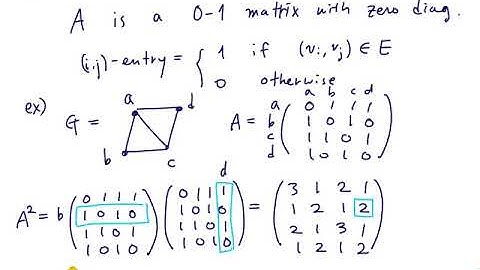 A is a 0-1 matrix with zero diag.
(i,j)-entry = { 1 if (vi, vj) ∈ E
0 otherwise
ex) a d
G =
b c
A =
a b c d
a 0 1 1 1
b 1 0 1 0
c 1 1 0 1
d 1 0 1 0
d
A² = b
0 1 1 1
1 0 1 0
1 1 0 1
1 0 1 0
0 1 1 1
1 0 1 0
1 1 0 1
1 0 1 0
=
3 1 2 1
1 2 1 2
2 1 3 1
1 2 1 2